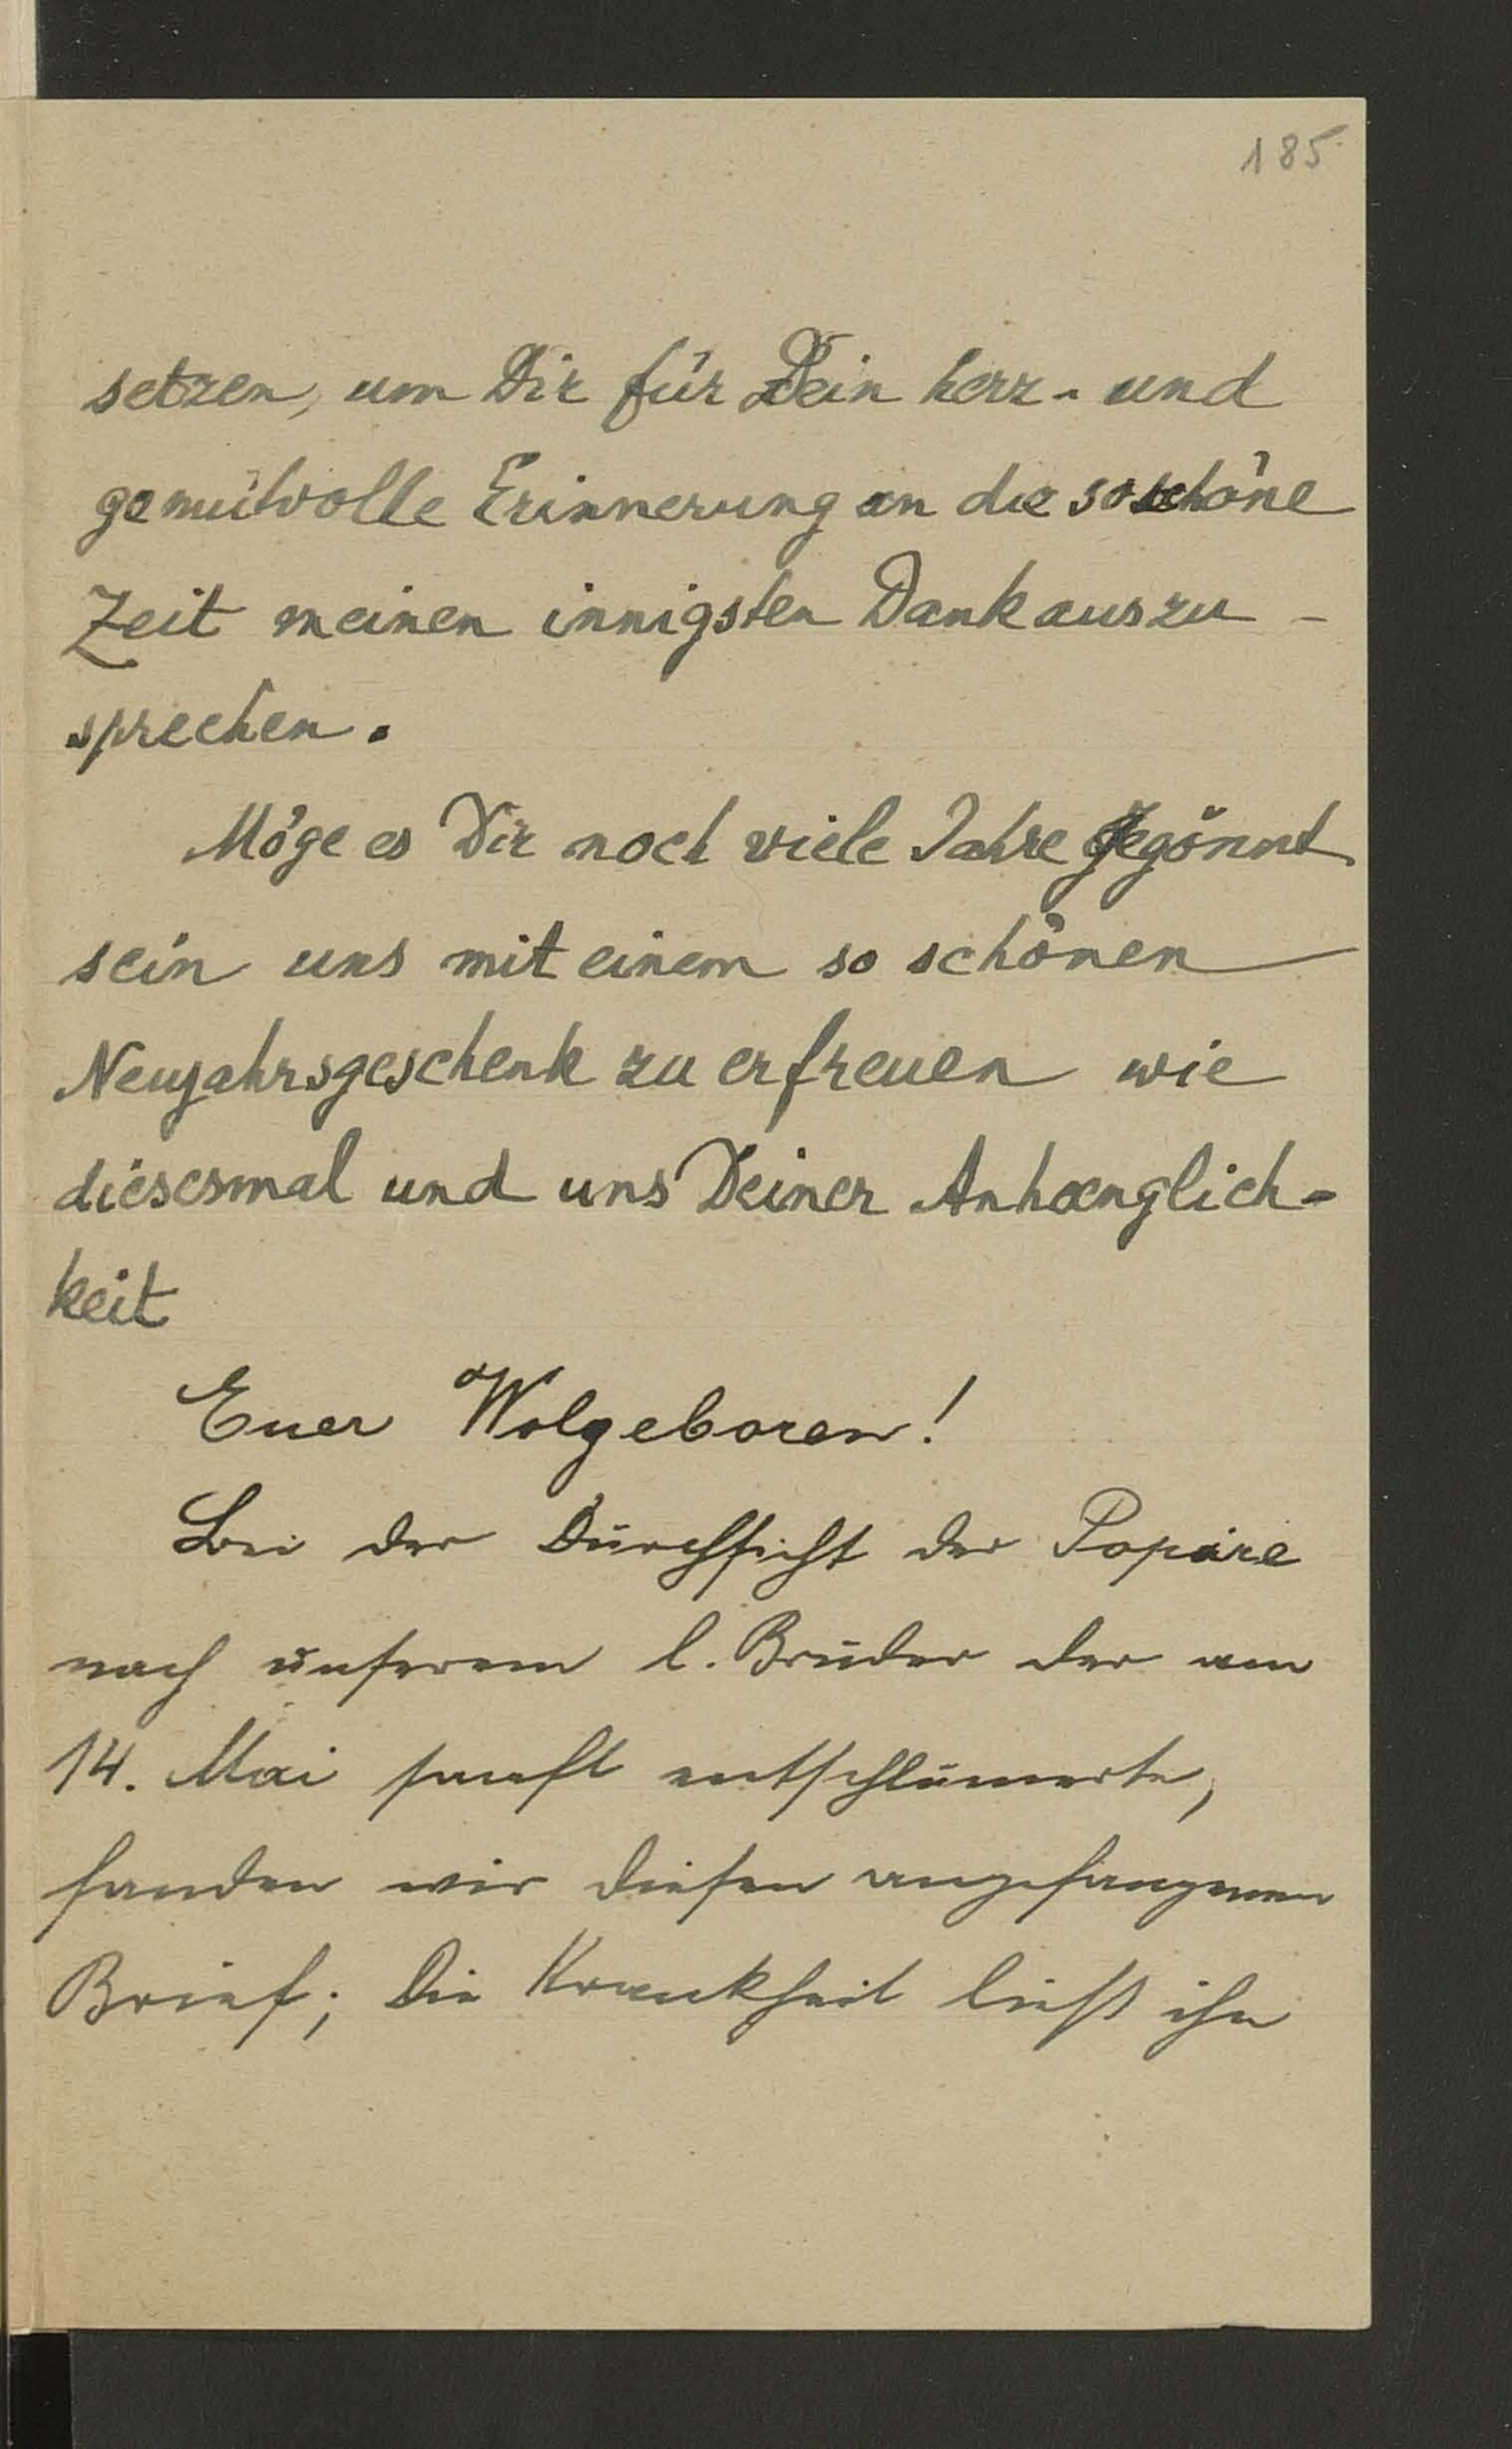 185
setzen, um Dir für Dein herz- und
gemütvolle Erinnerung an die so schöne
Zeit meinen innigsten Dank auszu-
sprechen.
Möge es Dir noch viele Jahre gegönnt
sein uns mit einem so schönen
Neujahrsgeschenk zu erfreuen wie
diesesmal und uns Deiner Anhaenglich-
keit
Euer Wolgeboren!
Bei der Durchsicht der Papire
nach unserem l. Bruder der am
14. Mai sanft entschlumerte,
fanden wir diesen angefangenen
Brief; die Krankheit ließ ihn